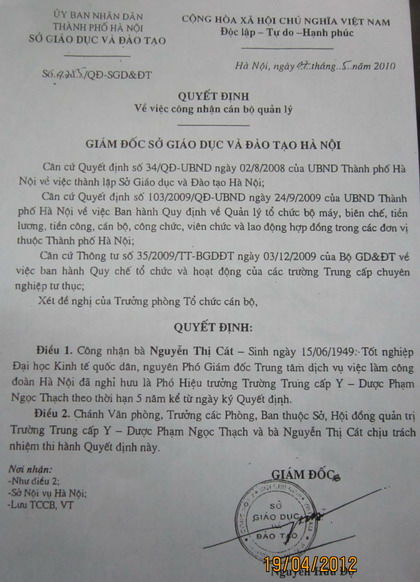 ỦY BAN NHÂN DÂN
THÀNH PHỐ HÀ NỘI
SỞ GIÁO DỤC VÀ ĐÀO TẠO
CỘNG HÒA XÃ HỘI CHỦ NGHĨA VIỆT NAM
Độc lập – Tự do – Hạnh phúc
Số: /QĐ-SGD&ĐT
Hà Nội, ngày tháng 5 năm 2010
QUYẾT ĐỊNH
Về việc công nhận cán bộ quản lý
GIÁM ĐỐC SỞ GIÁO DỤC VÀ ĐÀO TẠO HÀ NỘI
Căn cứ Quyết định số 34/QĐ-UBND ngày 02/8/2008 của UBND Thành phố Hà
Nội về việc thành lập Sở Giáo dục và Đào tạo Hà Nội;
Căn cứ Quyết định số 103/2009/QĐ-UBND ngày 24/9/2009 của UBND Thành
phố Hà Nội về việc Ban hành Quy định về Quản lý tổ chức bộ máy, biên chế, tiền
lương, tiền công, cán bộ, công chức, viên chức và lao động hợp đồng trong các đơn vị
thuộc Thành phố Hà Nội;
Căn cứ Thông tư số 35/2009/TT-BGDĐT ngày 03/12/2009 của Bộ GD&ĐT về
việc ban hành Quy chế tổ chức và hoạt động của các trường Trung cấp chuyên
nghiệp tư thục;
Xét đề nghị của Trưởng phòng Tổ chức cán bộ,
QUYẾT ĐỊNH:
Điều 1. Công nhận bà Nguyễn Thị Cát – Sinh ngày 15/06/1949: Tốt nghiệp
Đại học Kinh tế quốc dân, nguyên Phó Giám đốc Trung tâm dịch vụ việc làm công
đoàn Hà Nội đã nghỉ hưu là Phó Hiệu trưởng Trường Trung cấp Y – Dược Phạm
Ngọc Thạch theo thời hạn 5 năm kể từ ngày ký Quyết định.
Điều 2. Chánh Văn phòng, Trưởng các Phòng, Ban thuộc Sở, Hội đồng quản trị
Trường Trung cấp Y – Dược Phạm Ngọc Thạch và bà Nguyễn Thị Cát chịu trách
nhiệm thi hành Quyết định này.
Nơi nhận:
-Như điều 2;
-Sở Nội vụ Hà Nội;
-Lưu TCCB, VT
GIÁM ĐỐC
SỞ
GIÁO DỤC
ĐÀO TẠO
Nguyễn Hữu Độ
19/04/2012